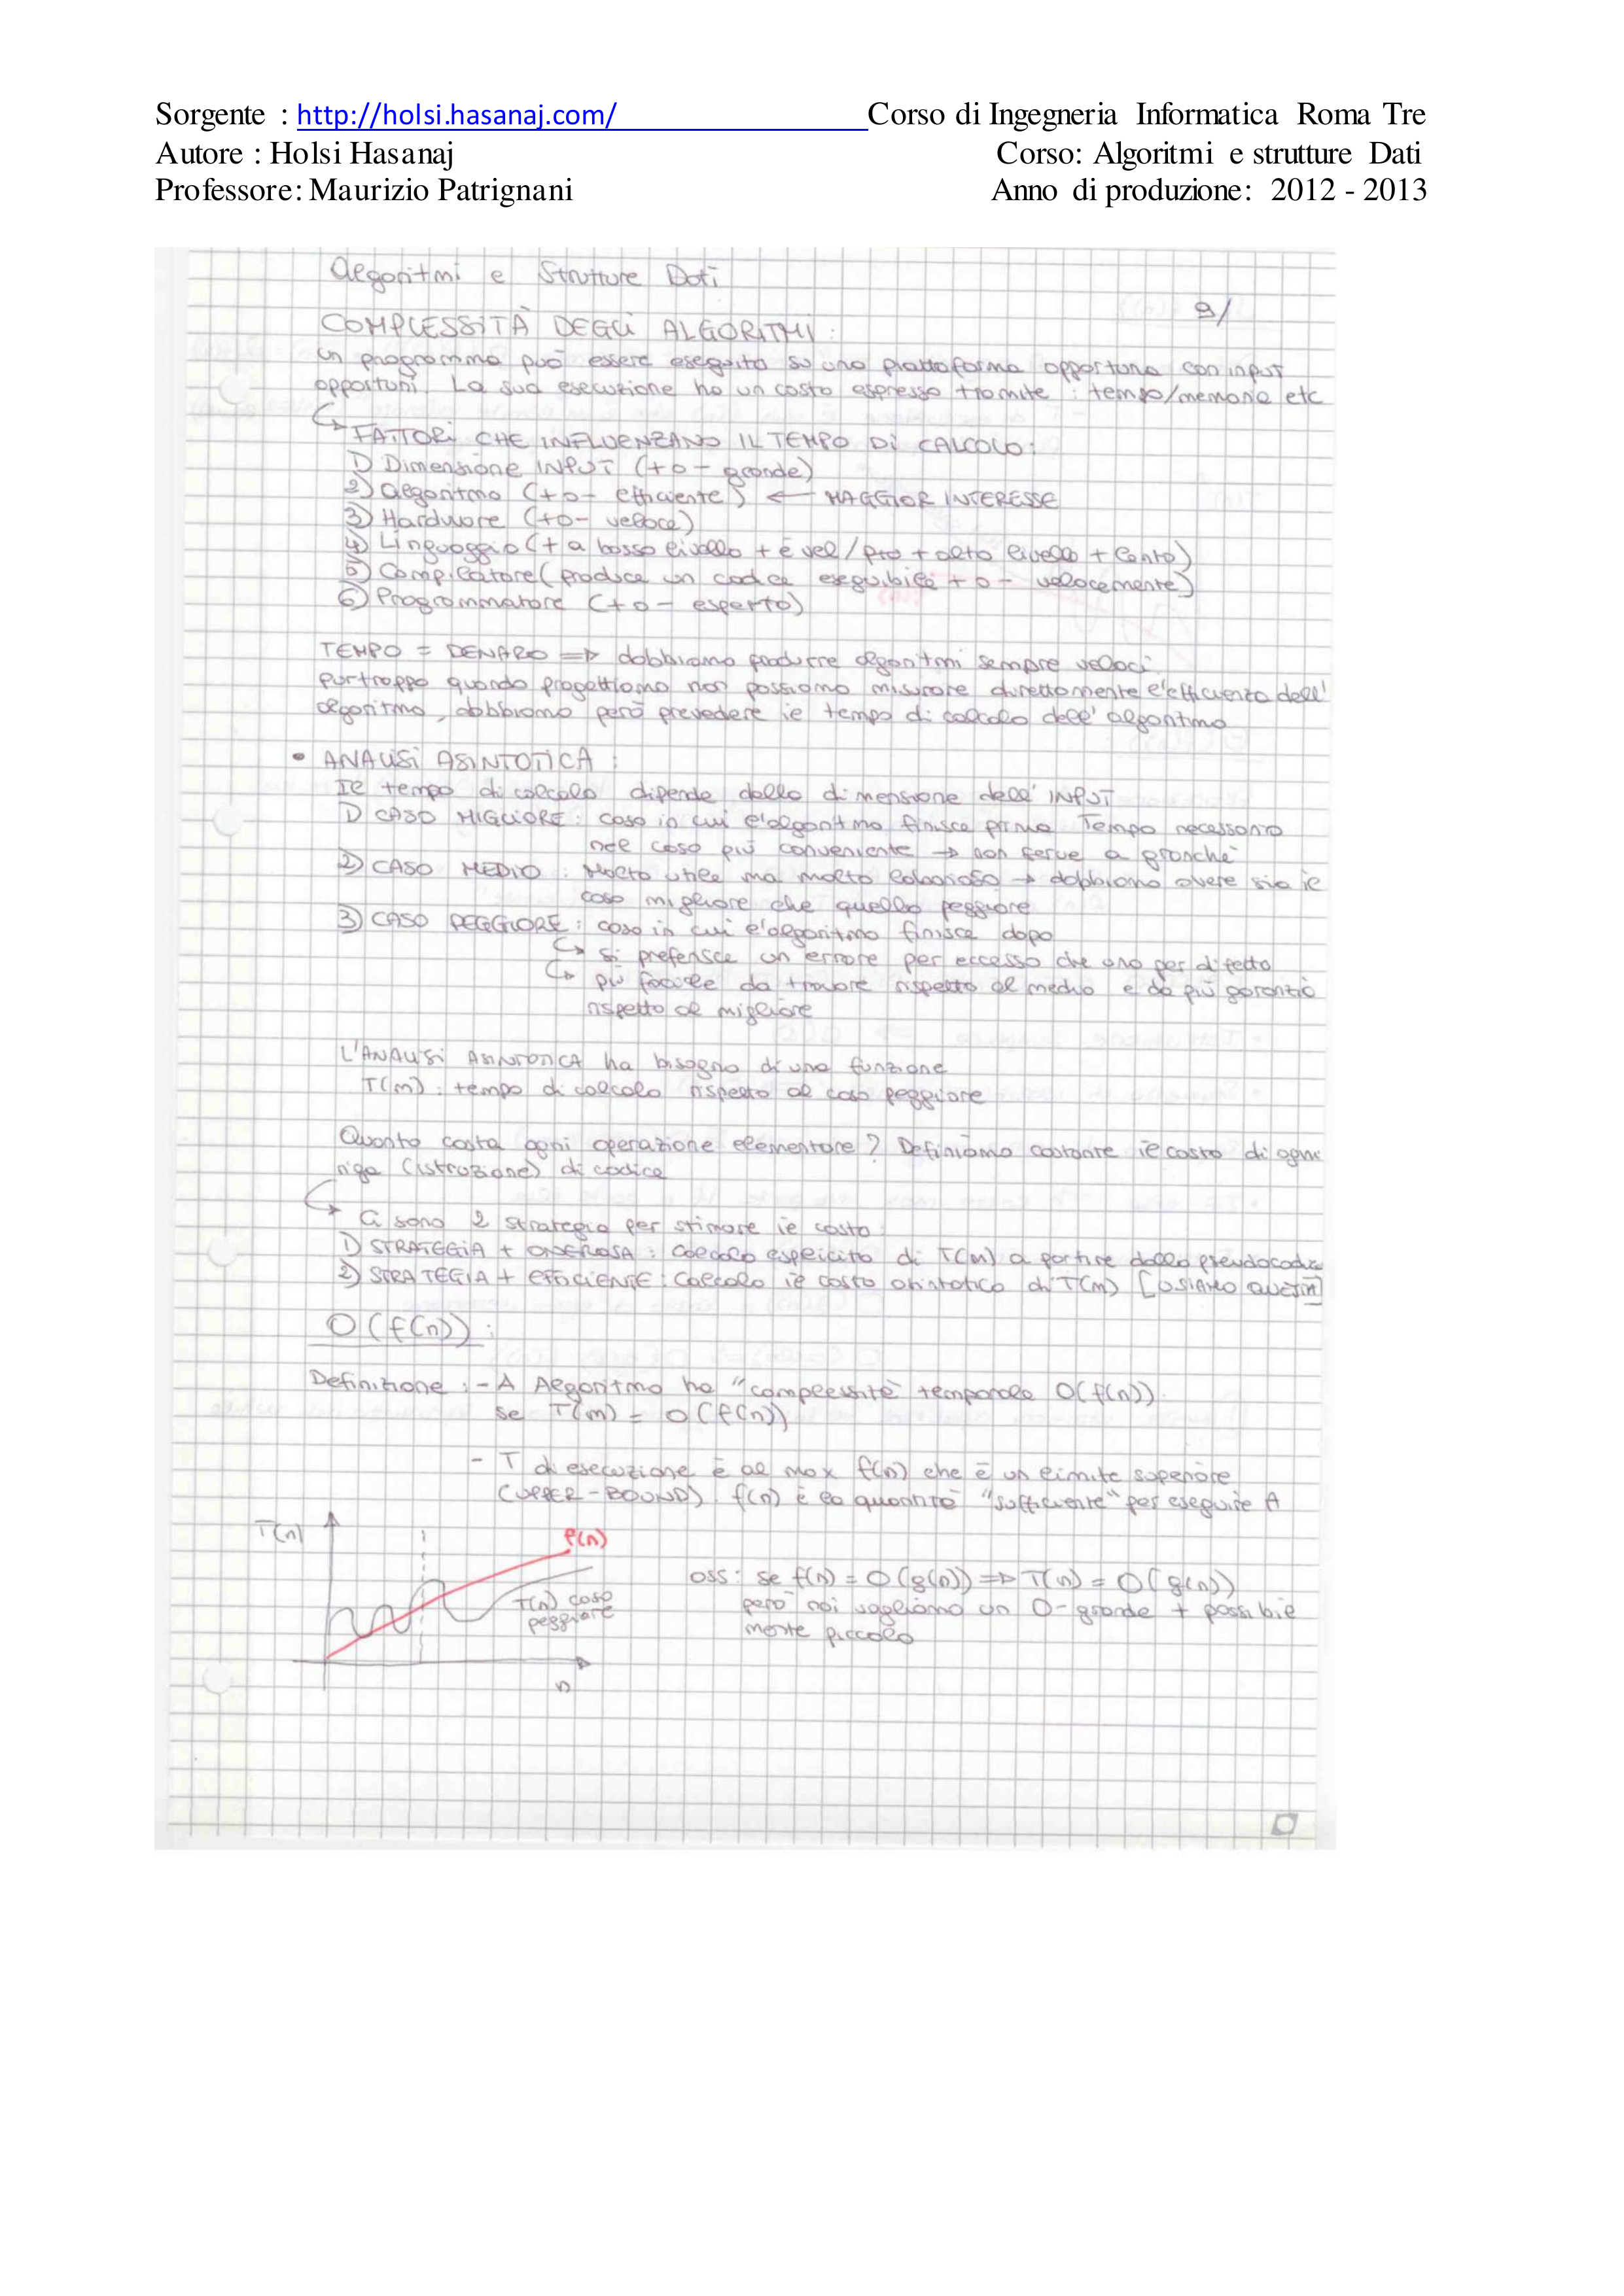 Sorgente : http://holsi.hasanaj.com/ Corso di Ingegneria Informatica Roma Tre
Autore : Holsi Hasanaj Corso: Algoritmi e strutture Dati
Professore: Maurizio Patrignani Anno di produzione: 2012 - 2013
Algoritmi e Strutture Dati
9/
COMPLESSITÀ DEGLI ALGORITMI:
un programma può essere eseguito su una piattaforma opportuna con input
opportuni. La sua esecuzione ha un costo espresso tramite : tempo/memoria etc
↳ FATTORI CHE INFLUENZANO IL TEMPO DI CALCOLO:
1) Dimensione INPUT (+ o - grande)
2) algoritmo (+ o - efficiente) ← MAGGIOR INTERESSE
3) Hardware (+ o - veloce)
4) Linguaggio (+ a basso livello + è vel/ più + alto livello + lento)
5) Compilatore (produce un codice eseguibile + o - velocemente)
6) Programmatore (+ o - esperto)
TEMPO = DENARO => dobbiamo produrre algoritmi sempre veloci
purtroppo quando progettiamo non possiamo misurare direttamente l'efficienza dell'
algoritmo, dobbiamo però prevedere il tempo di calcolo dell' algoritmo
• ANALISI ASINTOTICA :
Il tempo di calcolo dipende dalla dimensione dell' INPUT
1) CASO MIGLIORE : caso in cui l'algoritmo finisce prima Tempo necessario
nel caso più conveniente → non serve a granché
2) CASO MEDIO : Molto utile ma molto laborioso → dobbiamo avere sia il
caso migliore che quello peggiore
3) CASO PEGGIORE : caso in cui l'algoritmo finisce dopo
↳ si preferisce un errore per eccesso che uno per difetto
↳ più facile da trovare rispetto al medio e dà più garanzie
rispetto al migliore
L'ANALISI ASINTOTICA ha bisogno di una funzione
T(n) : tempo di calcolo rispetto al caso peggiore
Quanto costa ogni operazione elementare? Definiamo costante il costo di ogni
riga (istruzione) di codice
↳ Ci sono 2 strategie per stimare il costo:
1) STRATEGIA + ONEROSA : Calcolo esplicito di T(n) a partire dallo pseudocodice
2) STRATEGIA + EFFICIENTE : Calcolo il costo asintotico di T(n) [USIAMO QUESTA]
O(f(n)) :
Definizione : - A Algoritmo ha "complessità temporale O(f(n))
se T(n) = O(f(n))
- T di esecuzione è al max f(n) che è un limite superiore
(UPPER-BOUND) f(n) è la quantità "sufficiente" per eseguire A
T(n)
f(n)
T(n) caso
peggiore
n
oss: se f(n) = O(g(n)) => T(n) = O(g(n))
però noi vogliamo un O-grande + possibil
mente piccolo